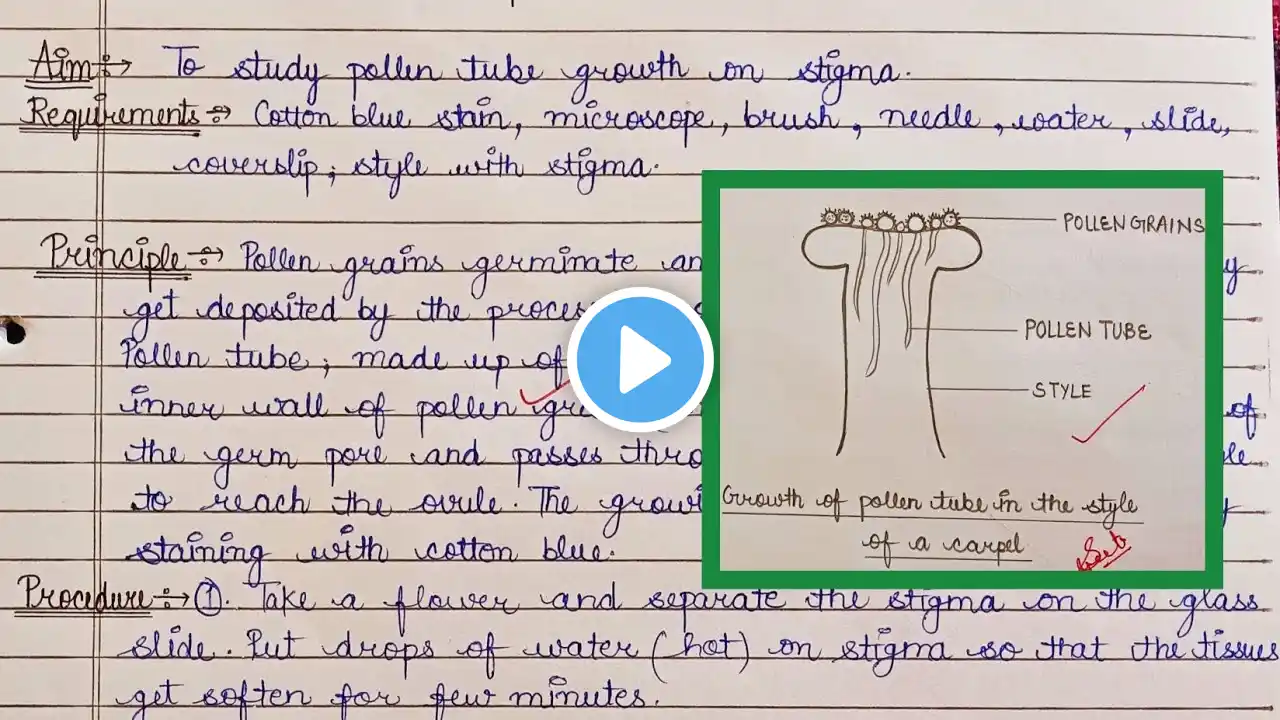 Aim :→ To study pollen tube growth on stigma.
Requirements :→ Cotton blue stain, microscope, brush, needle, water, slide,
coverslip, style with stigma.
Principle :→ Pollen grains germinate
get deposited by the
Pollen tube, made up of
inner wall of pollen
of
the germ pore and passes
to reach the ovule. The
staining with cotton blue.
Procedure :→ ①. Take a flower and separate the stigma on the glass
slide. Put drops of water (hot) on stigma so that the tissues
get soften for few minutes.
POLLEN GRAINS
POLLEN TUBE
STYLE
Growth of pollen tube in the style
of a carpel